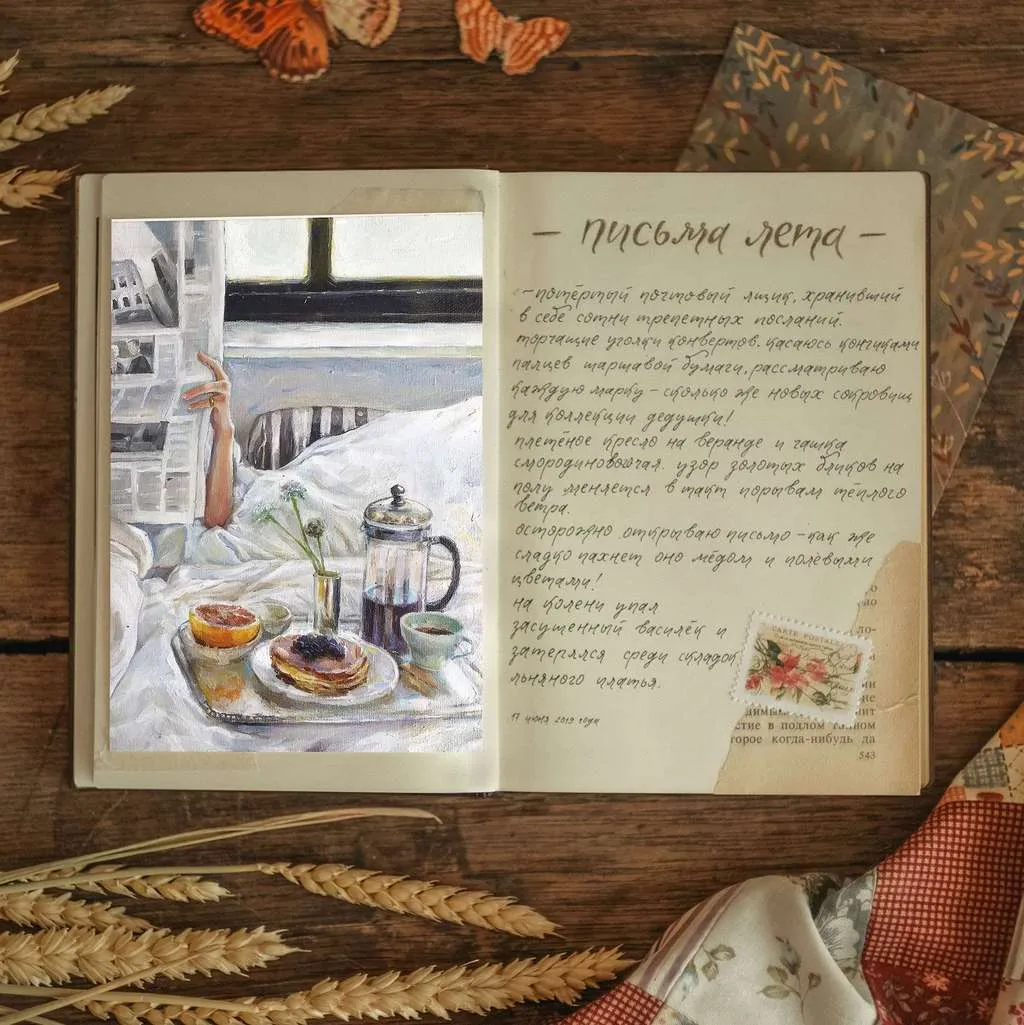 — письма лета —
- потёртый почтовый ящик, хранивший
в себе сотни трепетных посланий.
торчащие уголки конвертов. касаюсь кончиками
пальцев шаршавой бумаги, рассматриваю
каждую марку - сколько же новых сокровищ
для коллекции дедушки!
плетёное кресло на веранде и чашка
смородинового чая. узор золотых бликов на
полу меняется в такт порывам тёплого
ветра.
осторожно открываю письмо - как же
сладко пахнет оно мёдом и полевыми
цветами!
на колени упал
засушенный василёк и
затерялся среди складок
льняного платья.
17 июня 2019 года
CARTE POSTALE
стие в подлом
торое когда-нибудь да
543